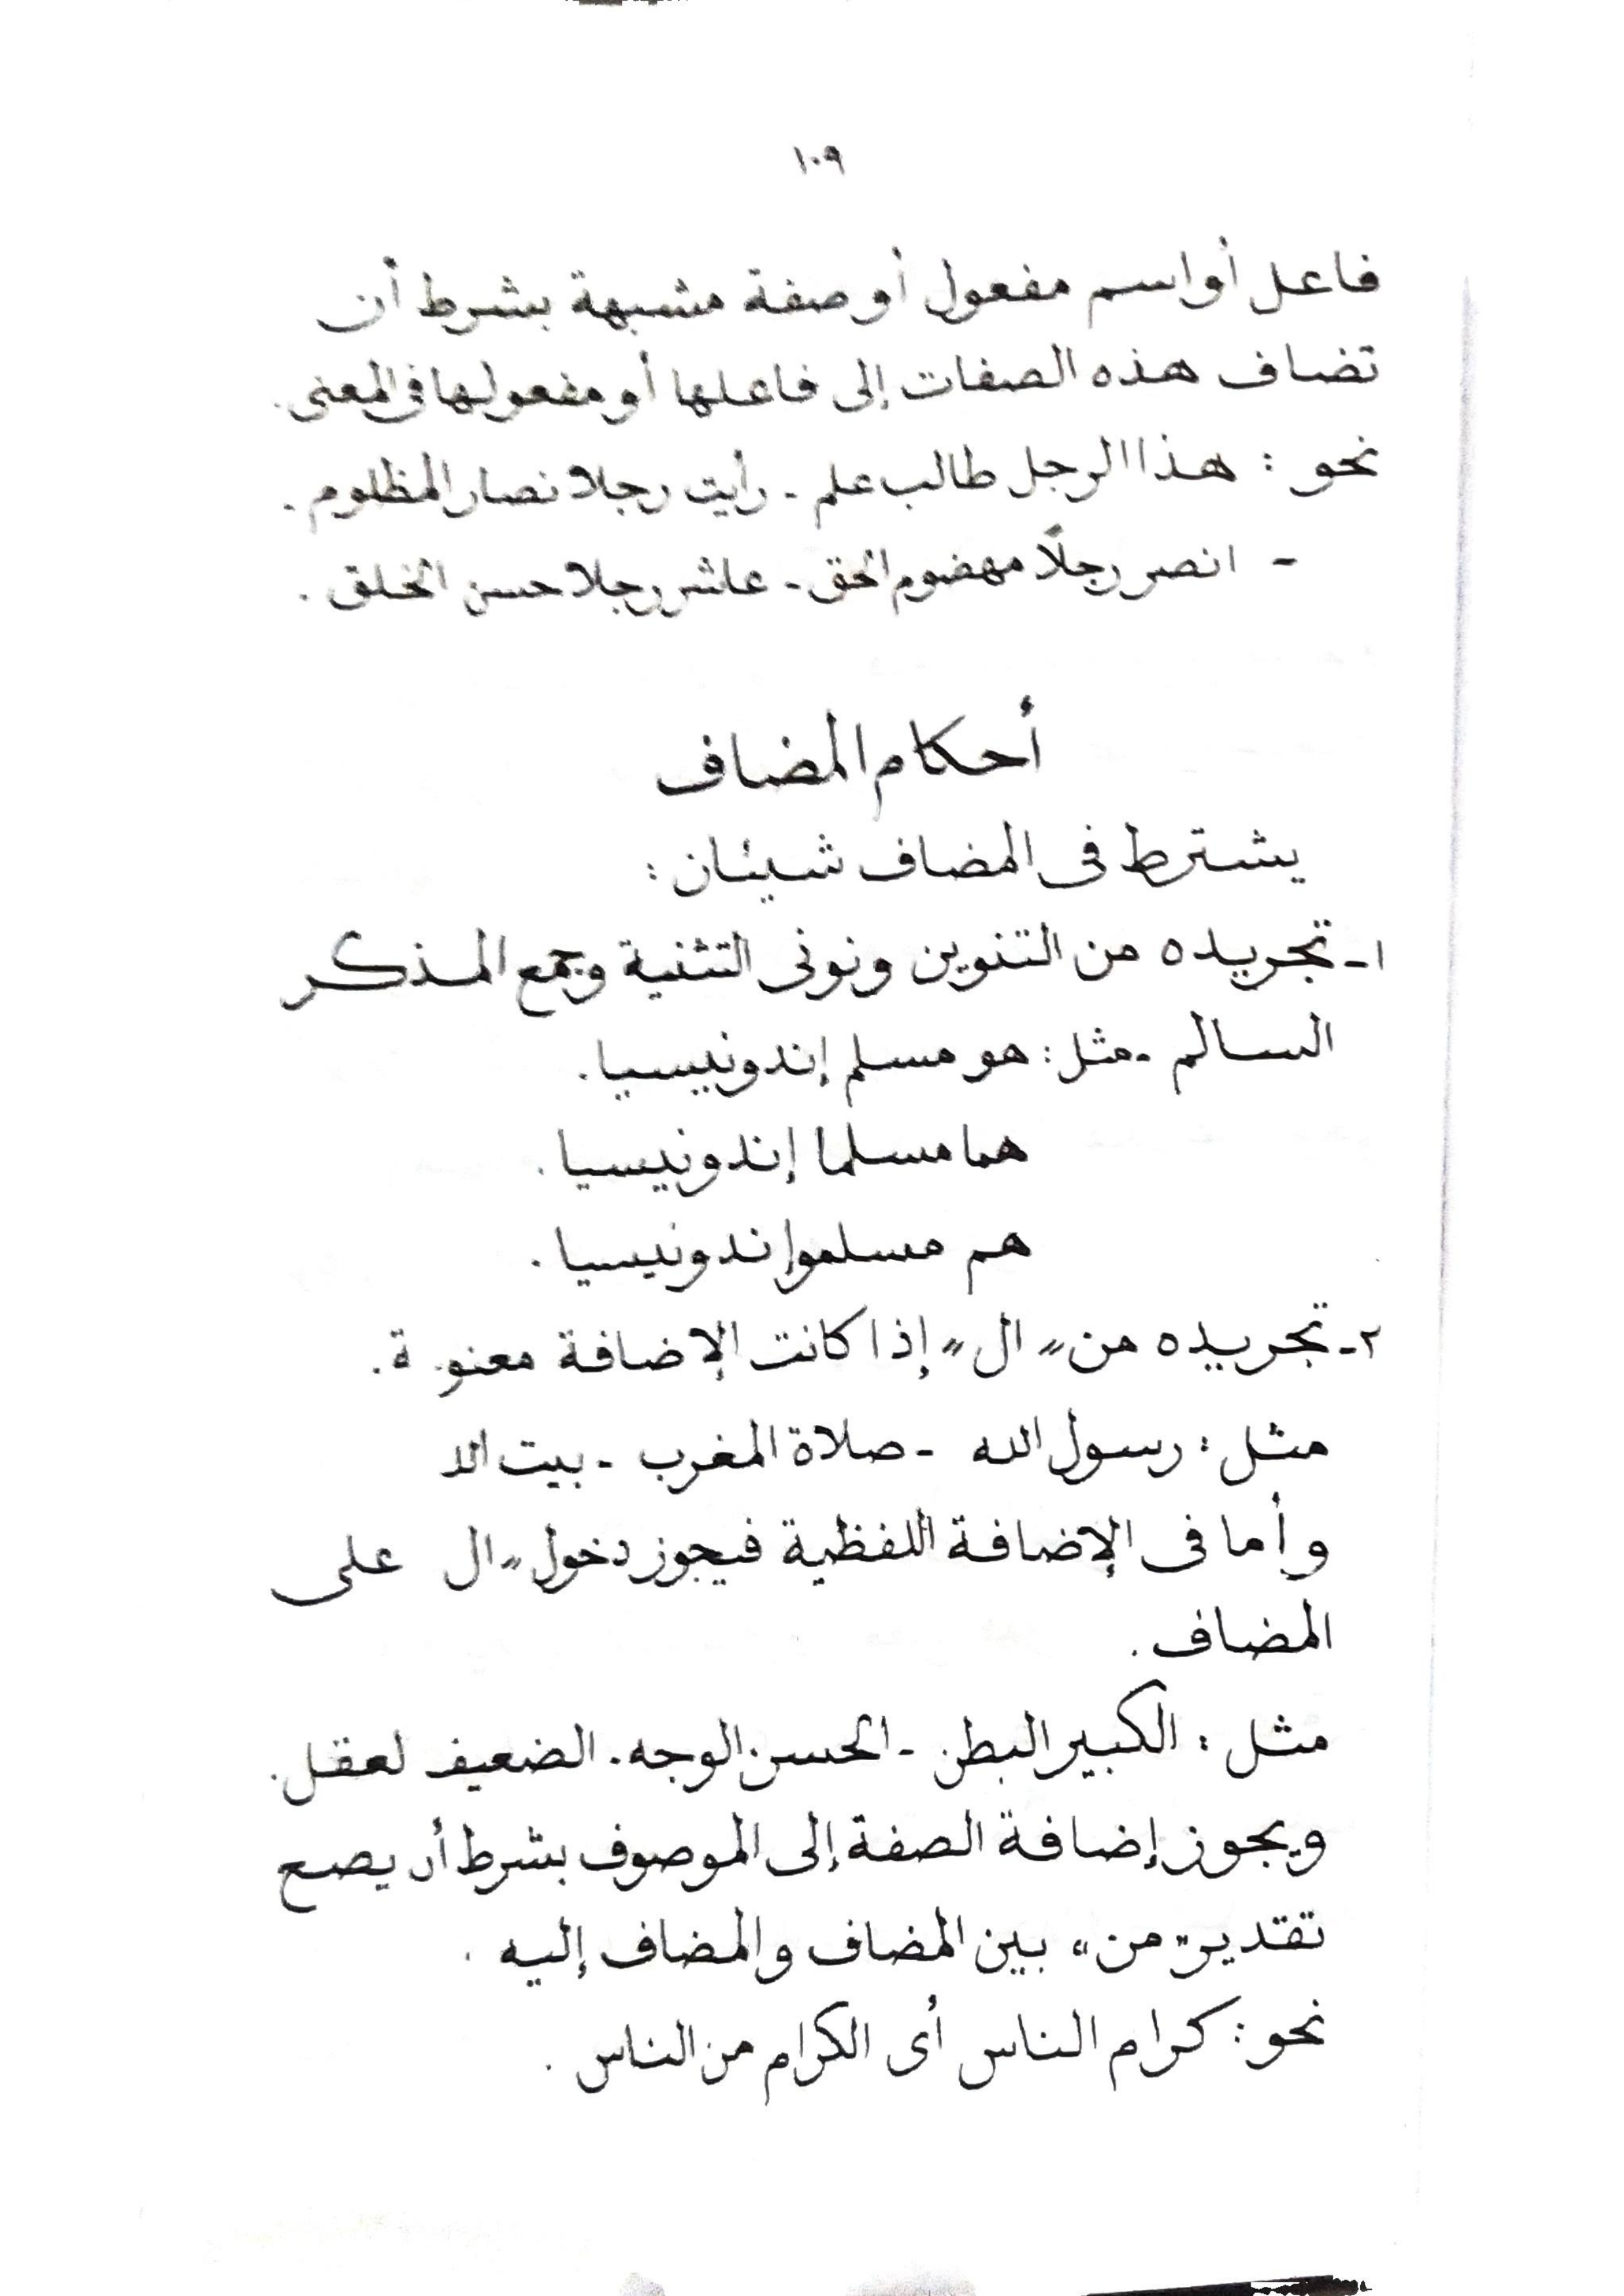 ١٠٩
فاعل أو اسم مفعول أو صفة مشبهة بشرط أن
تضاف هذه الصفات إلى فاعلها أو مفعولها فى المعنى .
نحو : هذا الرجل طالب علم - رأيت رجلا نصار المظلوم .
- انصر رجلًا مهضوم الحق - عاشر رجلا حسن الخلق .
أحكام المضاف
يشترط فى المضاف شيئان :
١- تجريده من التنوين ونونى التثنية وجمع المذكر
السالم - مثل : هو مسلم إندونيسيا .
هما مسلما إندونيسيا .
هم مسلمو إندونيسيا .
٢- تجريده من „ ال „ إذا كانت الإضافة معنوية .
مثل : رسول الله - صلاة المغرب - بيت الله
وأما فى الإضافة اللفظية فيجوز دخول „ ال على
المضاف .
مثل : الكبير البطن - الحسن الوجه - الضعيف لعقل .
ويجوز إضافة الصفة إلى الموصوف بشرط أن يصح
تقدير „ من „ بين المضاف والمضاف إليه .
نحو : كرام الناس أى الكرام من الناس .